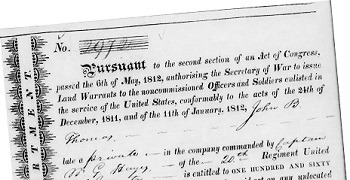 No. 2992
Pursuant to the second section of an Act of Congress,
passed the 6th of May, 1812, authorising the Secretary of War to issue
Land Warrants to the noncommissioned Officers and Soldiers enlisted in
the service of the United States, conformably to the acts of the 24th of
December, 1811, and of the 11th of January, 1812, John B.
Thomas
late a private in the company commanded by Captain
of the 20th Regiment United
is entitled to ONE HUNDRED AND SIXTY
on any unlocated
RTMENT.